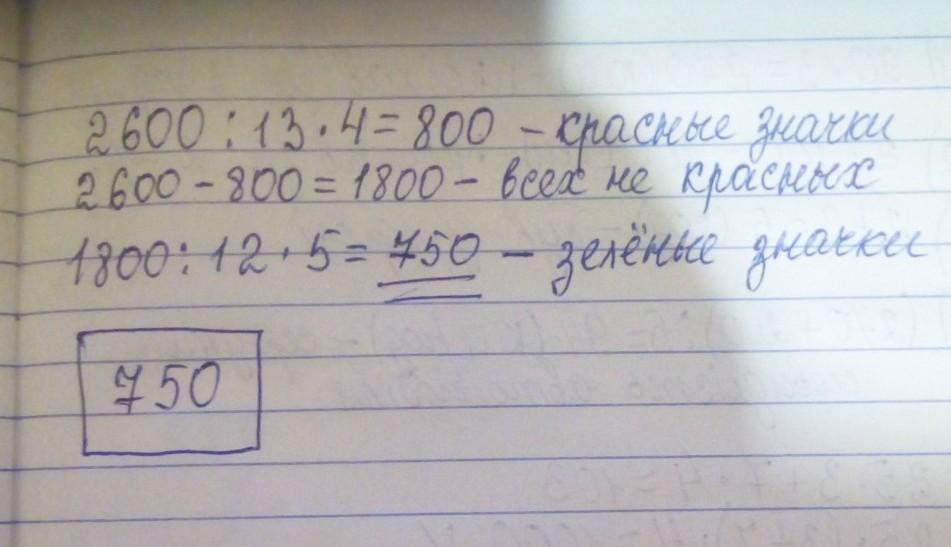 2600 : 13 · 4 = 800 – красные значки
2600 – 800 = 1800 – всех не красных
1800 : 12 · 5 = 750 – зелёные значки
750